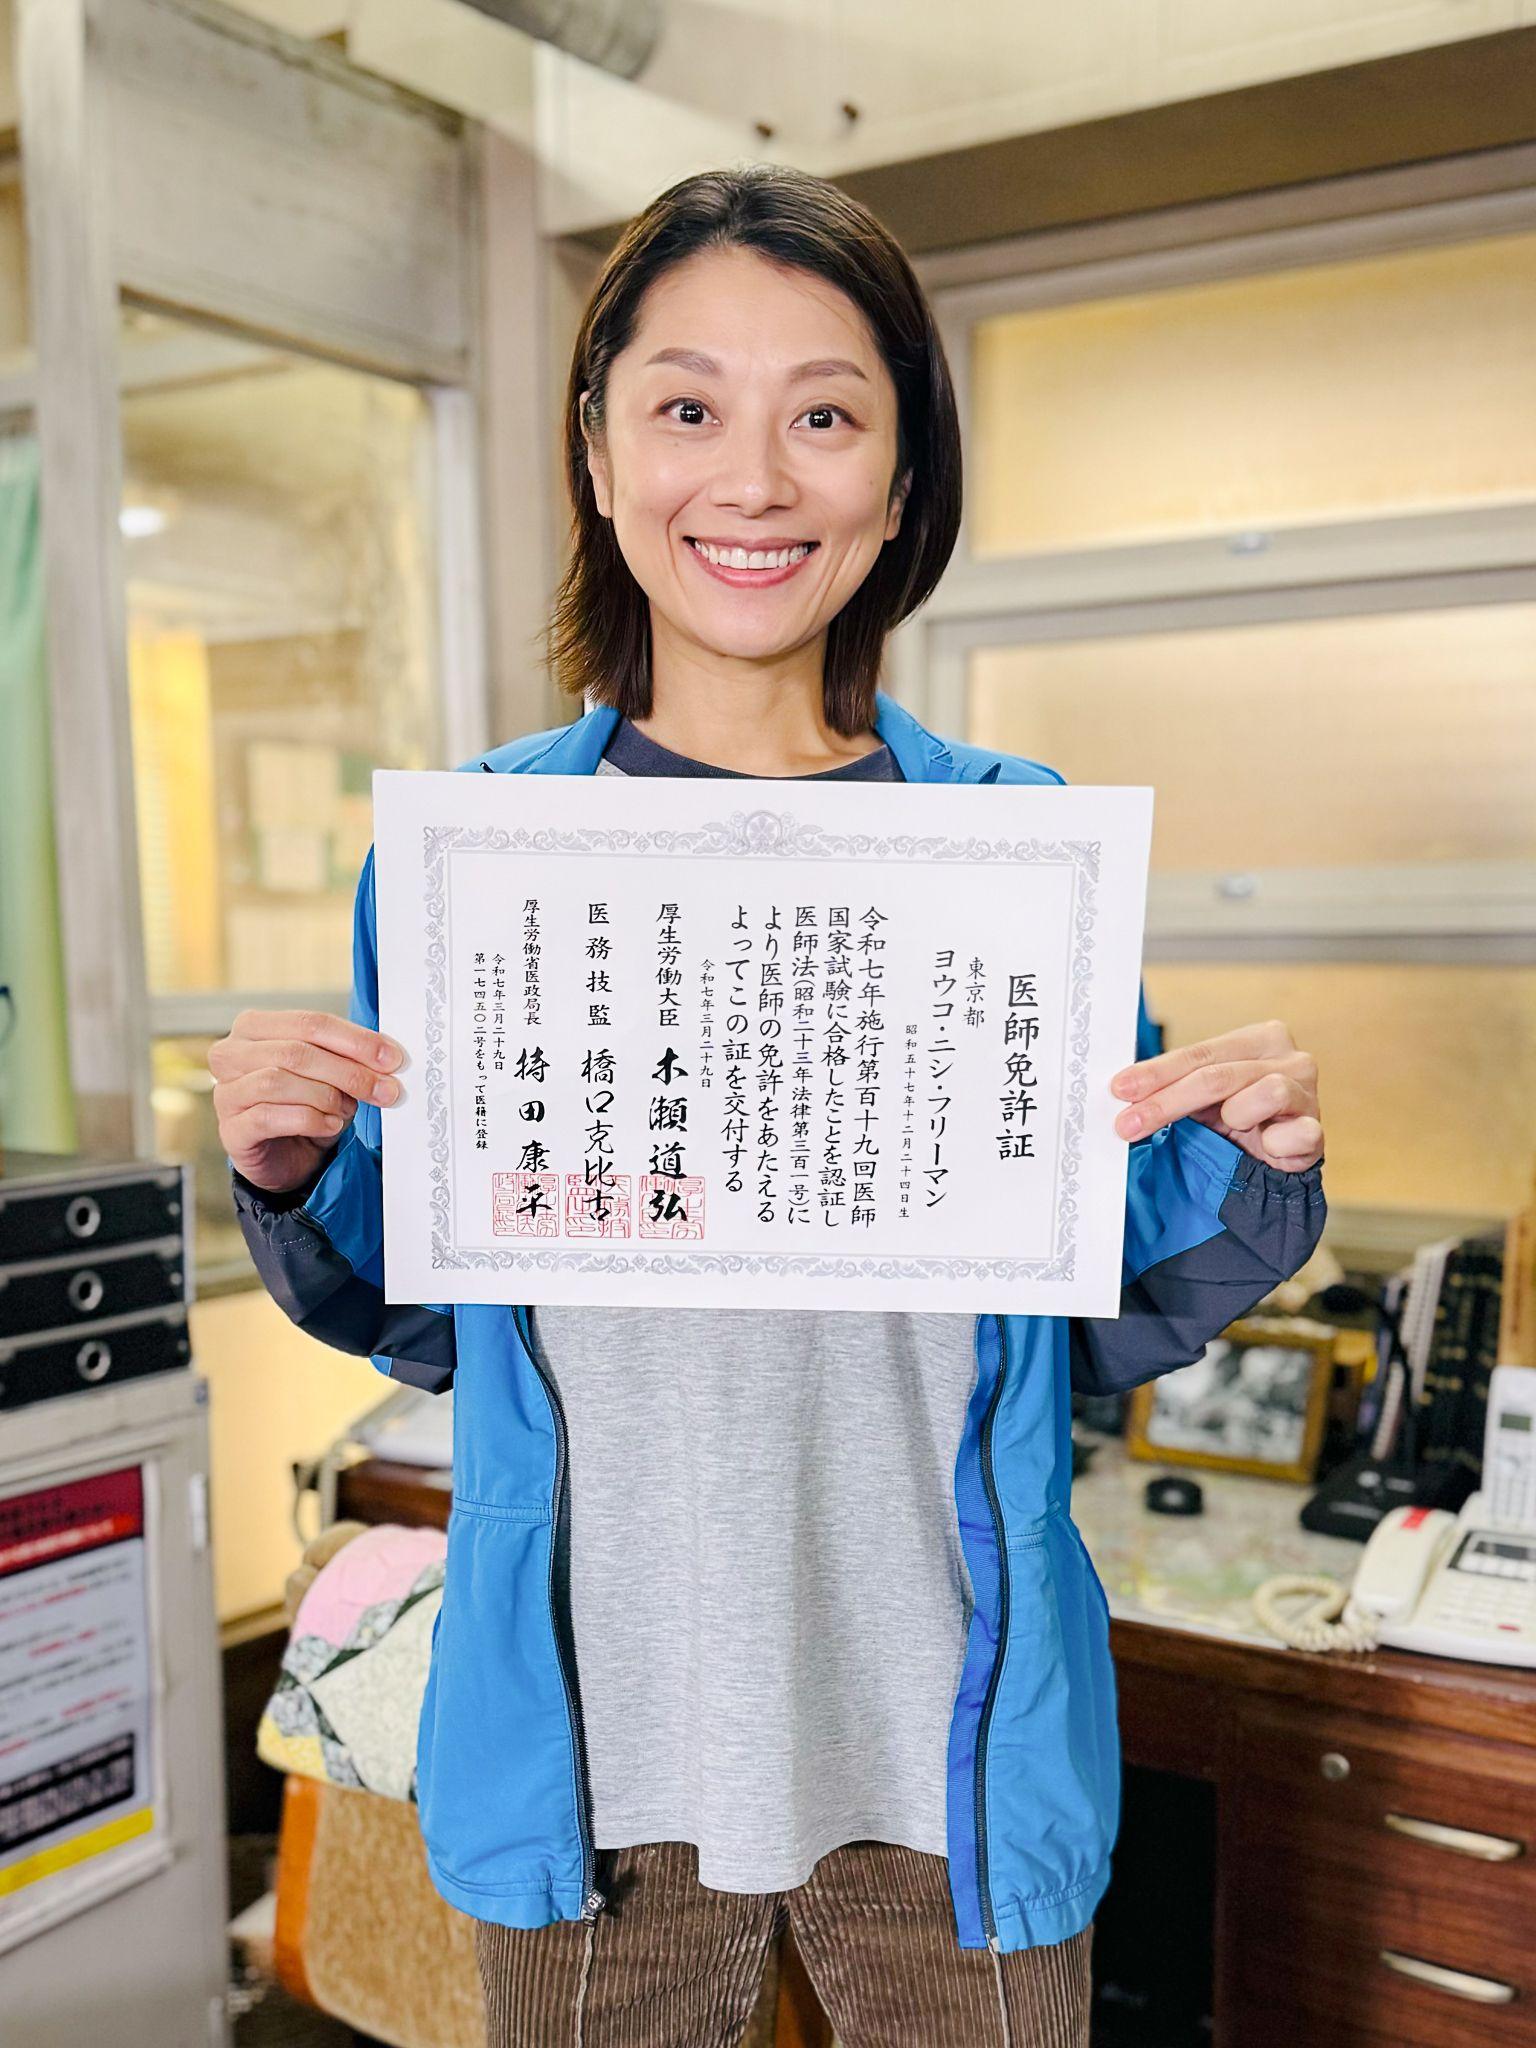 医師免許証
東京都
ヨウコ・ニシ・フリーマン
昭和五十七年十二月二十四日生
令和七年施行第百十九回医師
国家試験に合格したことを認証し
医師法(昭和二十三年法律第三百一号)に
より医師の免許をあたえる
よってこの証を交付する
令和七年三月二十九日
厚生労働大臣 木瀬道弘
医務技監 橋口克比古
厚生労働省医政局長 持田康平
令和七年三月二十九日
第一七四五〇二号をもって医籍に登録